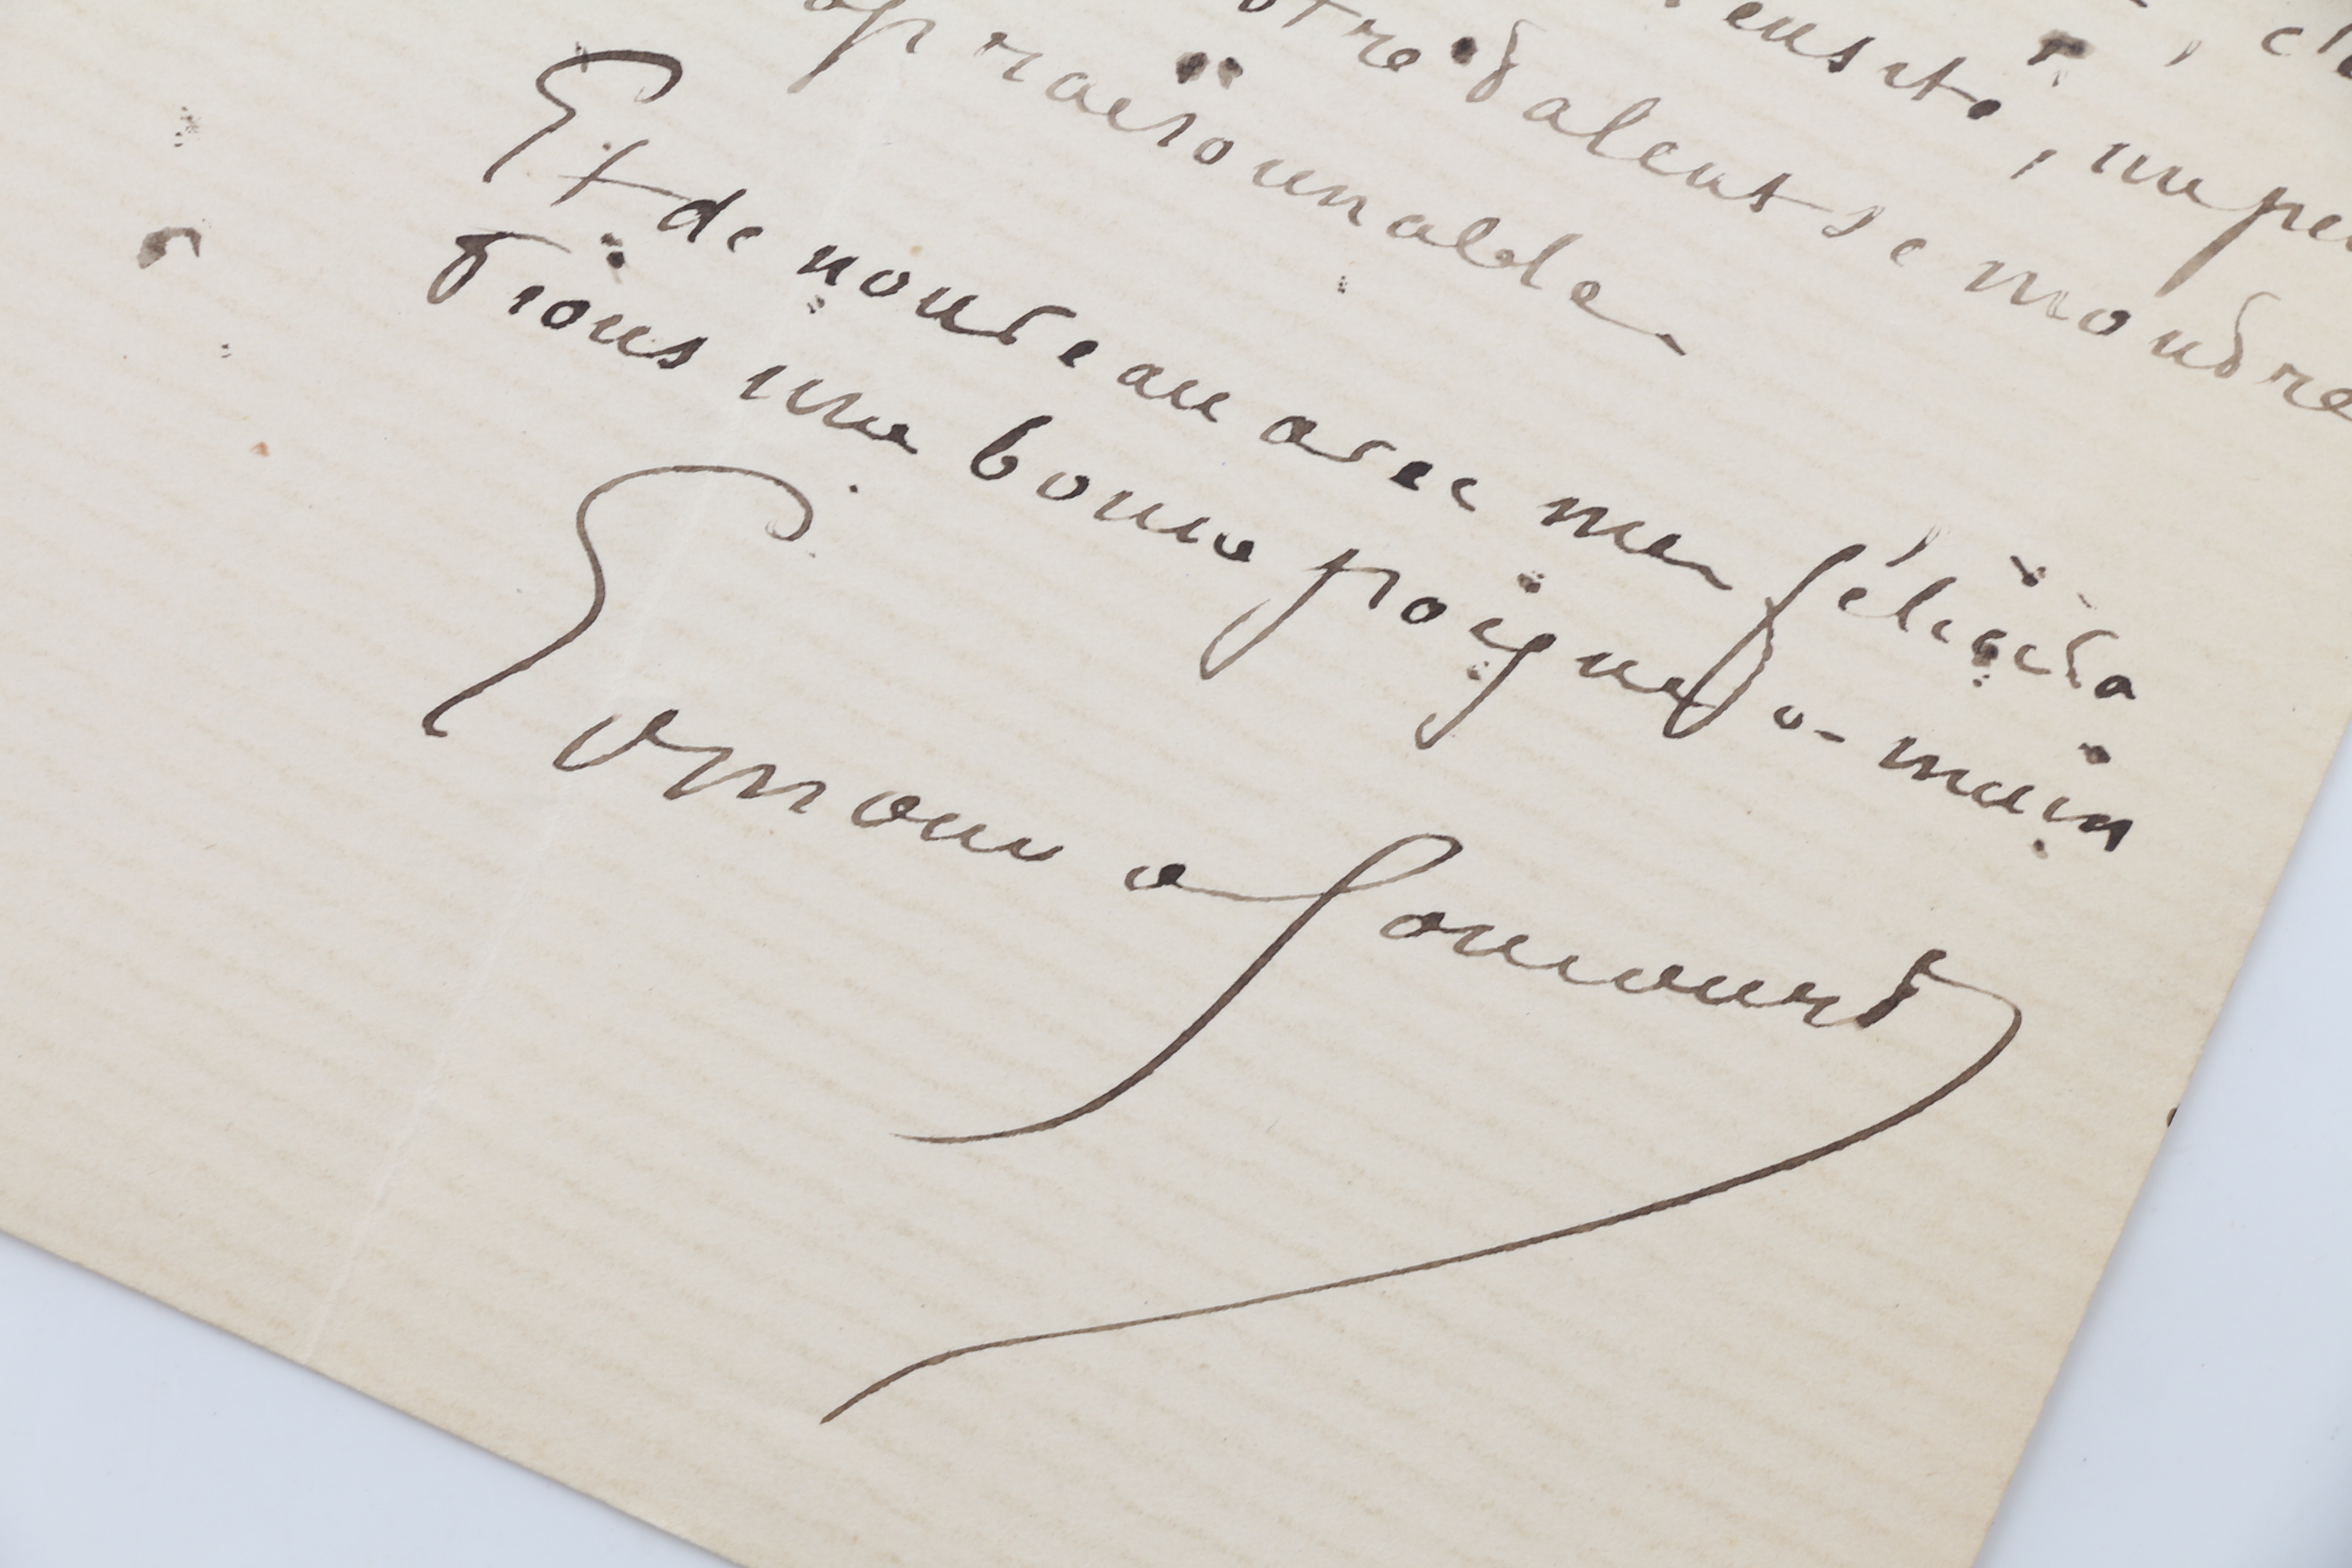 , un peu
votre talent se montre
op raisonnables
Et de nouveau avec mes félicita
tions une bonne poignée de main
Edmond de Goncourt